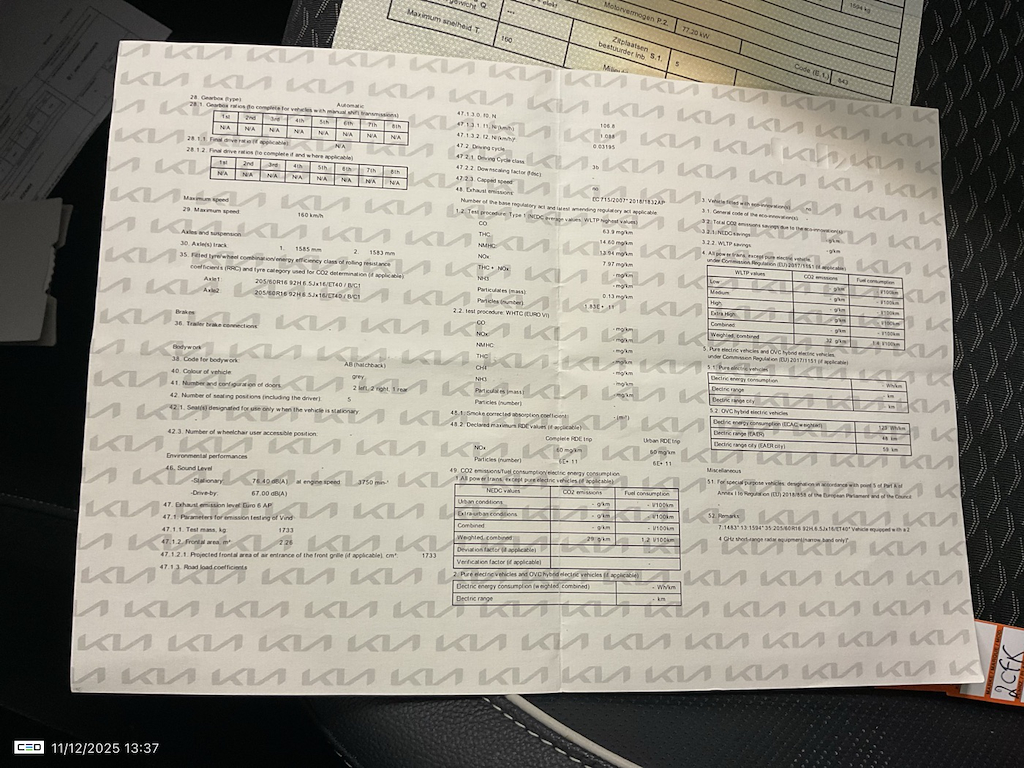 Motorvermogen P.2.
77,20 kW
1594 kg
Maximum snelheid T.
160
Zitplaatsen
bestuurder inb
S.1.
5
Code (E.1.)
643
28. Gearbox (type) Automatic
28.1. Gearbox ratios (to complete for vehicles with manual shift transmissions)
1st 2nd 3rd 4th 5th 6th 7th 8th
N/A N/A N/A N/A N/A N/A N/A N/A
28.1.1. Final drive ratio (if applicable) N/A
28.1.2. Final drive ratios (to complete if and where applicable)
1st 2nd 3rd 4th 5th 6th 7th 8th
N/A N/A N/A N/A N/A N/A N/A N/A
Maximum speed
29. Maximum speed 160 km/h
Axles and suspension
30. Axle(s) track 1. 1585 mm 2. 1583 mm
35. Fitted tyre/wheel combination/energy efficiency class of rolling resistance
coefficients (RRC) and tyre category used for CO2 determination (if applicable)
Axle1 205/60R16 92H 6.5Jx16/ET40 / B/C1
Axle2 205/60R16 92H 6.5Jx16/ET40 / B/C1
Brakes
36. Trailer brake connections
Bodywork
38. Code for bodywork AB (hatchback)
40. Colour of vehicle grey
41. Number and configuration of doors 2 left, 2 right, 1 rear
42. Number of seating positions (including the driver) 5
42.1. Seat(s) designated for use only when the vehicle is stationary
42.3. Number of wheelchair user accessible position
Environmental performances
46. Sound Level
-Stationary 76.40 dB(A) at engine speed 3750 min-¹
-Drive-by 67.00 dB(A)
47. Exhaust emission level Euro 6 AP
47.1. Parameters for emission testing of Vind
47.1.1. Test mass, kg 1733
47.1.2. Frontal area, m² 2.26
47.1.2.1. Projected frontal area of air entrance of the front grille (if applicable), cm² 1733
47.1.3. Road load coefficients
47.1.3.0. f0, N 106.8
47.1.3.1. f1, N/(km/h) 1.088
47.1.3.2. f2, N/(km/h)² 0.03195
47.2. Driving cycle
47.2.1. Driving Cycle class 3b
47.2.2. Downscaling factor (fdsc)
47.2.3. Capped speed no
48. Exhaust emissions: EC 715/2007*2018/1832AP
Number of the base regulatory act and latest amending regulatory act applicable
1.2. Test procedure: Type 1 (NEDC average values, WLTP highest values)
CO 63.9 mg/km
THC 14.60 mg/km
NMHC 13.94 mg/km
NOx 7.97 mg/km
THC + NOx - mg/km
NH3 - mg/km
Particulates (mass) 0.13 mg/km
Particles (number) 1.83E+ 11
2.2. test procedure: WHTC (EURO VI)
CO - mg/km
NOx - mg/km
NMHC - mg/km
THC - mg/km
CH4 - mg/km
NH3 - mg/km
Particulates (mass) - mg/km
Particles (number)
48.1. Smoke corrected absorption coefficient: - (m-¹)
48.2. Declared maximum RDE values (if applicable)
Complete RDE trip Urban RDE trip
NOx 60 mg/km 60 mg/km
Particles (number) 6E+ 11 6E+ 11
49. CO2 emissions/fuel consumption/electric energy consumption
1. All power trains, except pure electric vehicles (if applicable)
NEDC values CO2 emissions Fuel consumption
Urban conditions - g/km - l/100km
Extra-urban conditions - g/km - l/100km
Combined - g/km - l/100km
Weighted, combined 29 g/km 1.2 l/100km
Deviation factor (if applicable) -
Verification factor (if applicable) -
2. Pure electric vehicles and OVC hybrid electric vehicles (if applicable)
Electric energy consumption (weighted, combined) - Wh/km
Electric range - km
3. Vehicle fitted with eco-innovation(s)
3.1. General code of the eco-innovation(s)
3.2. Total CO2 emissions savings due to the eco-innovation(s)
3.2.1. NEDC savings - g/km
3.2.2. WLTP savings - g/km
4. All power trains, except pure electric vehicle,
under Commission Regulation (EU) 2017/1151 (if applicable)
WLTP values CO2 emissions Fuel consumption
Low - g/km - l/100km
Medium - g/km - l/100km
High - g/km - l/100km
Extra High - g/km - l/100km
Combined - g/km - l/100km
Weighted, combined g/km l/100km
5. Pure electric vehicles and OVC hybrid electric vehicles,
under Commission Regulation (EU) 2017/1151 (if applicable)
5.1. Pure electric vehicles
Electric energy consumption - Wh/km
Electric range - km
Electric range city - km
5.2. OVC hybrid electric vehicles
Electric energy consumption (ECAC,weighted) Wh/km
Electric range (EAER) km
Electric range city (EAER city) km
Miscellaneous
51. For special purpose vehicles: designation in accordance with point 5 of Part A of
Annex I to Regulation (EU) 2018/858 of the European Parliament and of the Council
52. Remarks
7:1483*13:1594*35:205/60R16 92H,6.5Jx16/ET40* Vehicle equipped with a 2
4 GHz short-range radar equipment(narrow band only)*
2CFK
CEO 11/12/2025 13:37